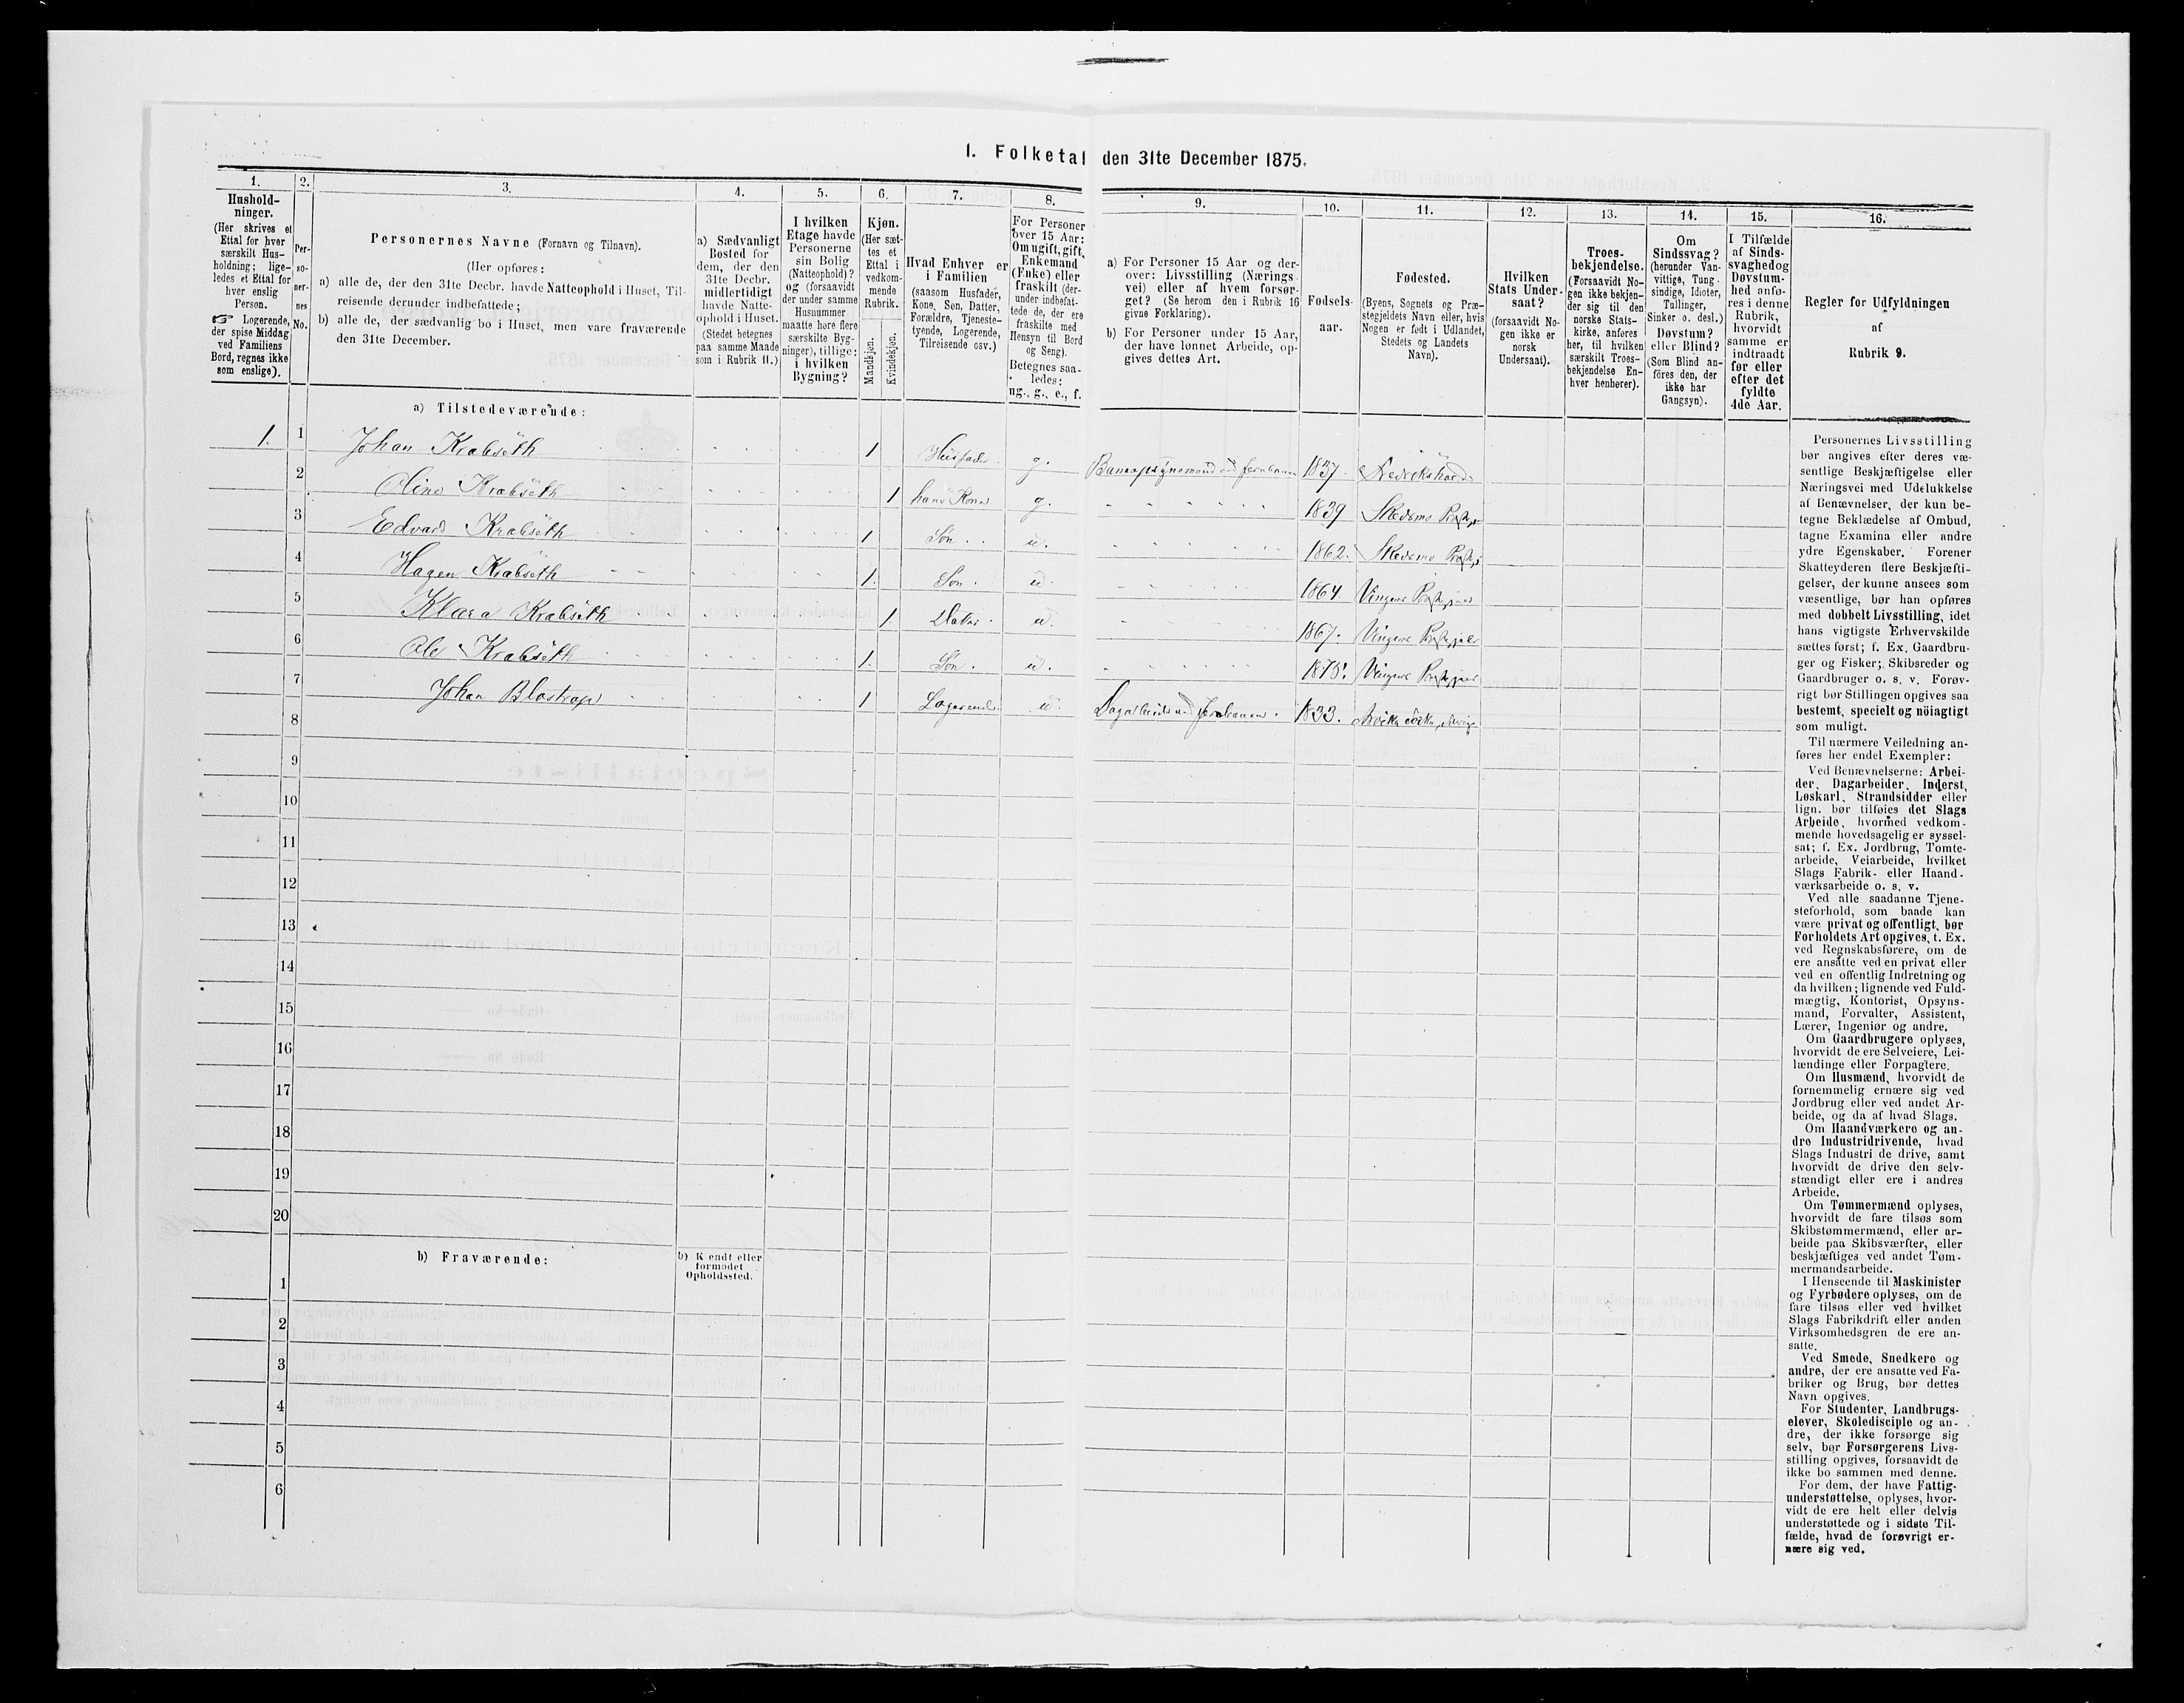 1. Folketal den 31te December 1875.
1.
2.
3.
4.
5.
6.
7.
8.
9.
10.
11.
12.
13.
14.
15.
16.
Hushold-
ninger.
(Her skrives et
Ettal for hver
særskilt Hus-
holdning; lige-
ledes et Ettal for
hver enslig
Person.
☞ Logerende,
der spise Middag
ved Familiens
Bord, regnes ikke
som enslige).
Per-
so-
ner-
nes
No.
Personernes Navne (Fornavn og Tilnavn).
(Her opføres:
a) alle de, der den 31te Decbr. havde Natteophold i Huset, Til-
reisende derunder indbefattede;
b) alle de, der sædvanlig bo i Huset, men vare fraværende
den 31te December.
a) Sædvanligt
Bosted for
dem, der den
31te Decbr.
midlertidigt
havde Natte-
ophold i Huset.
(Stedet betegnes
paa samme Maade
som i Rubrik 11.)
I hvilken
Etage havde
Personerne
sin Bolig
(Natteophold)?
og (forsaavidt
der under samme
Husnummer
maatte høre flere
særskilte Byg-
ninger), tillige:
i hvilken
Bygning?
Kjøn.
(Her sæt-
tes et
Ettal i
vedkom-
mende
Rubrik.
Mandkjøn.
Kvindekjøn.
Hvad Enhver er
i Familien
(saasom Husfader,
Kone, Søn, Datter,
Forældre, Tjeneste-
tyende, Logerende,
Tilreisende osv.)
For Personer
over 15 Aar:
Om ugift, gift,
Enkemand
(Enke) eller
fraskilt (der-
under indbefat-
tede de, der ere
fraskilte med
Hensyn til Bord
og Seng).
Betegnes saa-
ledes:
ug., g., e., f.
a) For Personer 15 Aar og der-
over: Livsstilling (Nærings-
vei) eller af hvem forsør-
get? (Se herom den i Rubrik 16
givne Forklaring).
b) For Personer under 15 Aar,
der have lønnet Arbeide, op-
gives dettes Art.
Fødsels-
aar.
Fødested.
(Byens, Sognets og Præ-
stegjeldets Navn eller, hvis
Nogen er født i Udlandet,
Stedets og Landets
Navn).
Hvilken
Stats Under-
saat?
(forsaavidt No-
gen ikke er
norsk
Undersaat).
Troes-
bekjendelse.
(Forsaavidt No-
gen ikke bekjen-
der sig til den
norske Stats-
kirke, anføres
her, til hvilken
særskilt Troes-
bekjendelse En-
hver henhører).
Om
Sindssvag?
(herunder Van-
vittige, Tung-
sindige, Idioter,
Tullinger,
Sinker o. desl.)
Døvstum?
eller Blind?
(Som Blind an-
føres den, der
ikke har
Gangsyn).
I Tilfælde
af Sinds-
svaghed og
Døvstum-
hed anfø-
res i denne
Rubrik,
hvorvidt
samme er
indtraadt
før eller
efter det
fyldte
4de Aar.
Regler for Udfyldningen
af
Rubrik 9.
a) Tilstedeværende:
1. 1 Johan Krabsöth 1 Husfader g. 1837. 
2 Oline Krabsöth 1 hans Kone g. 1839 Skedsmo
3 Edvard Krabsöth 1 Søn. u. 1862. Skedsmo
4 Hagen Krabsöth 1. Søn. u. 1864 Vinger
5 Klara Krabsöth 1 Datter u. 1867. Vinger
6 Ole Krabsöth 1. Søn. u. 1875. Vinger
7 Johan 1 Logerende u. 1833.
8
9
10
11
12
13
14
15
16
17
18
19
20
b) Fraværende:
b) Kendt eller
formodet
Opholdssted.
1
2
3
4
5
6
Personernes Livsstilling
bør angives efter deres væ-
sentlige Beskjæftigelse eller
Næringsvei med Udelukkelse
af Benævnelser, der kun be-
tegne Beklædelse af Ombud,
tagne Examina eller andre
ydre Egenskaber. Forener
Skatteyderen flere Beskjæfti-
gelser, der kunne ansees som
væsentlige, bør han opføres
med dobbelt Livsstilling, idet
hans vigtigste Erhvervskilde
sættes først; f. Ex. Gaardbru-
ger og Fisker; Skibsreder og
Gaardbruger o. s. v. Forøv-
rigt bør Stillingen opgives saa
bestemt, specielt og nöiagtigt
som muligt.
Til nærmere Veiledning an-
føres her endel Exempler:
Ved Benævnelserne: Arbei-
der, Dagarbeider, Inderst,
Løskarl, Strandsidder eller
lign. bør tilføies det Slags
Arbeide, hvormed vedkom-
mende hovedsagelig er syssel-
sat; f. Ex. Jordbrug, Tomte-
arbeide, Veiarbeide, hvilket
Slags Fabrik- eller Haand-
værksarbeide o. s. v.
Ved alle saadanne Tjene-
steforhold, som baade kan
være privat og offentligt, bør
Forholdets Art opgives, t. Ex.
ved Regnskabsførere, om de
ere ansatte ved en privat eller
ved en offentlig Indretning og
da hvilken; lignende ved Fuld-
mægtig, Kontorist, Opsyns-
mand, Forvalter, Assistent,
Lærer, Ingeniør og andre.
Om Gaardbrugere oplyses,
hvorvidt de ere Selveiere, Lei-
lændinge eller Forpagtere.
Om Husmænd, hvorvidt de
fornemmelig ernære sig ved
Jordbrug eller ved andet Ar-
beide, og da af hvad Slags.
Om Haandværkere og an-
dre Industridrivende, hvad
Slags Industri de drive, samt
hvorvidt de drive den selv-
stændigt eller ere i andres
Arbeide.
Om Tømmermænd oplyses,
hvorvidt de fare tilsøs som
Skibstømmermænd, eller ar-
beide paa Skibsværfter, eller
beskjæftiges ved andet Tøm-
mermandsarbeide.
I Henseende til Maskinister
og Fyrbødere oplyses, om de
fare tilsøs eller ved hvilket
Slags Fabrikdrift eller anden
Virksomhedsgren de ere an-
satte.
Ved Smede, Snedkere og
andre, der ere ansatte ved Fa-
briker og Brug, bør dettes
Navn opgives.
For Studenter, Landbrugs-
elever, Skoledisciple og an-
dre, der ikke forsørge sig
selv, bør Forsørgerens Livs-
stilling opgives, forsaavidt de
ikke bo sammen med denne.
For dem, der have Fattig-
understøttelse, oplyses, hvor-
vidt de ere helt eller delvis
understøttede og i sidste Til-
fælde, hvad de forøvrigt er-
nære sig ved.